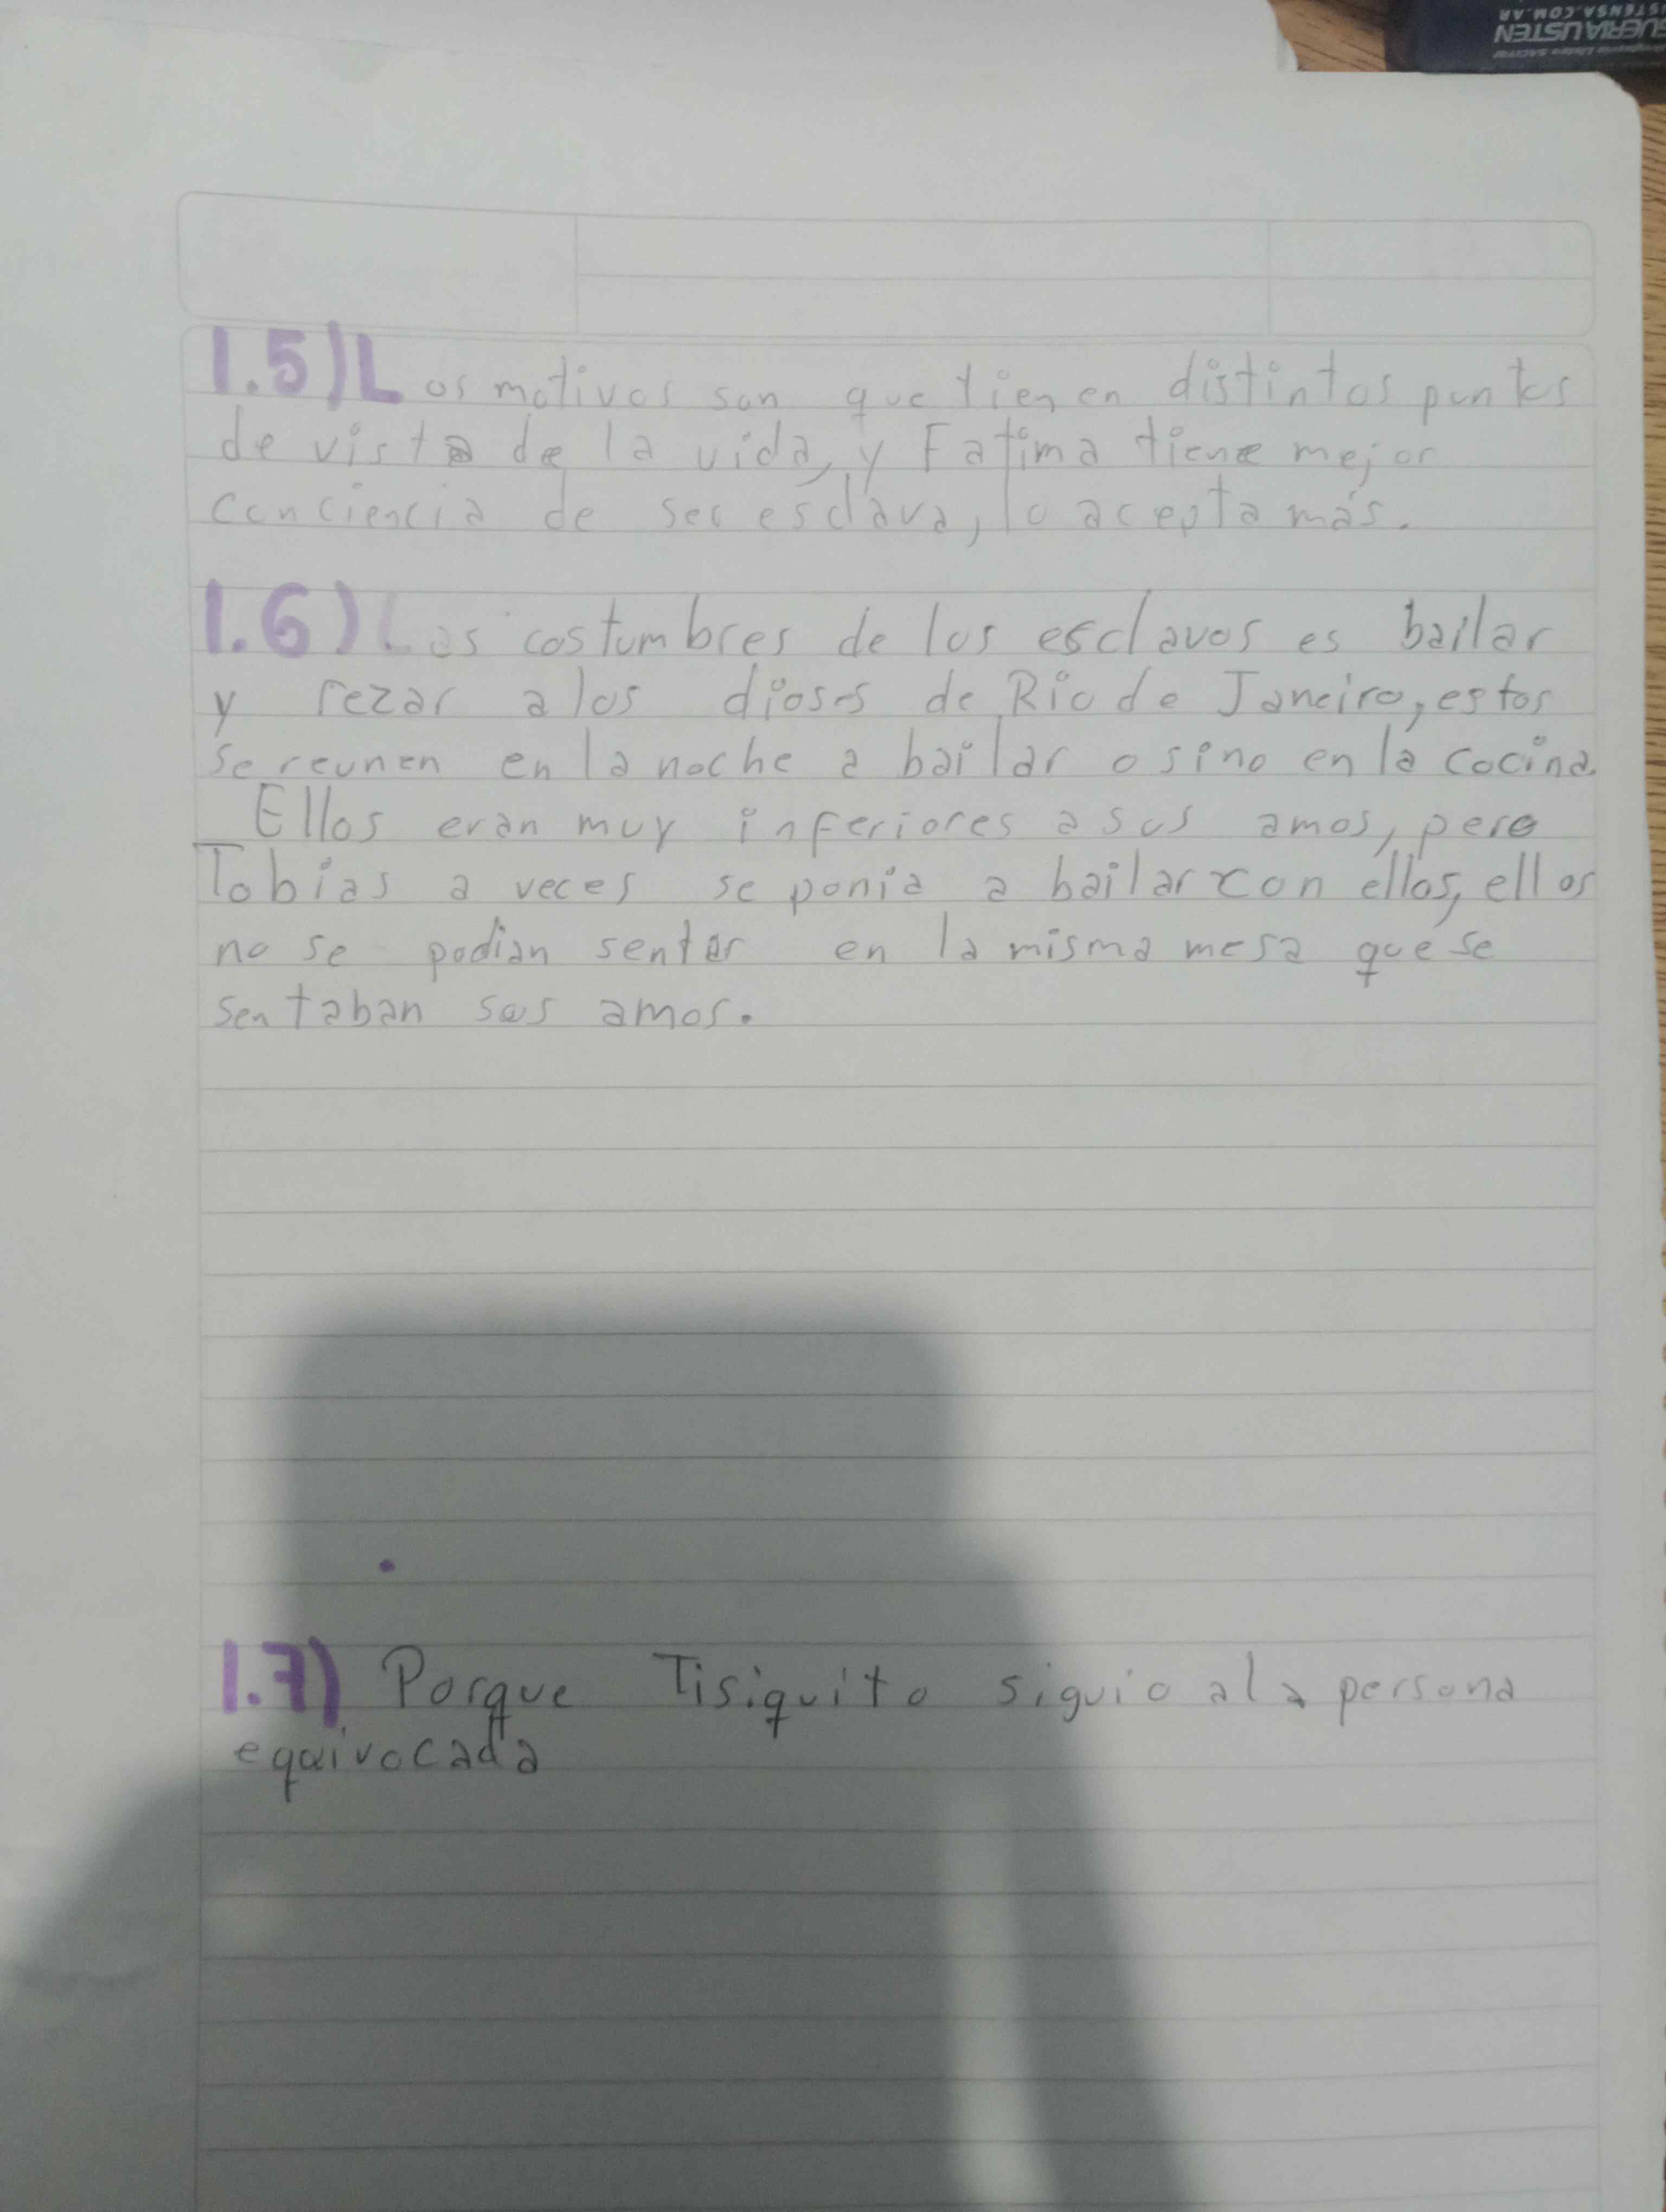 1.5) Los motivos son que tienen distintos puntos
de vista de la vida, y Fatima tiene mejor
conciencia de ser esclava, lo acepta más.
1.6) Las costumbres de los esclavos es bailar
y rezar a los dioses de Rio de Janeiro, estos
se reunen en la noche a bailar o sino en la cocina.
Ellos eran muy inferiores a sus amos, pero
Tobias a veces se ponia a bailar con ellos, ellos
no se podian sentar en la misma mesa que se
sentaban sus amos.
1.7) Porque Tisiquito siguio a la persona
equivocada